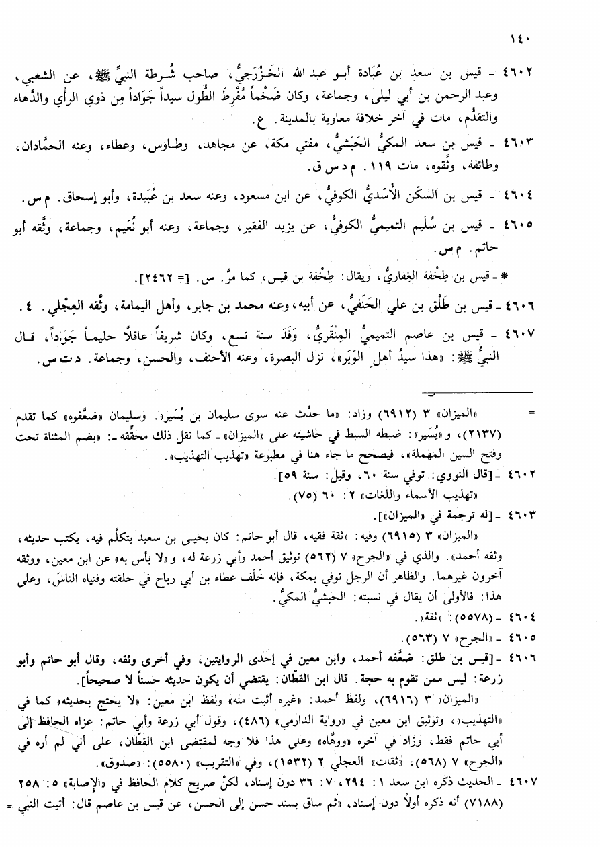 ١٤٠
٤٦٠٢ ـ قيس بن سعد بن عُبَادة أبو عبد الله الخَزْرَجيُّ، صاحب شُرطة النبيِّ ﷺ، عن الشعبي،
وعبد الرحمن بن أبي ليلى، وجماعة، وكان ضخماً مُفْرِطَ الطُّول سيداً جَوَاداً مِن ذوي الرأي والدَّهاء
والتقدُّم، مات في آخر خلافة معاوية بالمدينة. ع.
٤٦٠٣ ـ قيس بن سعد المكيُّ الحَبَشيُّ، مفتي مكة، عن مجاهد، وطاوس، وعطاء، وعنه الحمَّادان،
وطائفة، وثَّقوه، مات ١١٩. م د س ق.
٤٦٠٤ ـ قيس بن السكن الأَسَديُّ الكوفيُّ، عن ابن مسعود، وعنه سعد بن عُبَيدة، وأبو إسحاق. م س.
٤٦٠٥ ـ قيس بن سُلَيم التميميُّ الكوفيُّ، عن يزيد الفقير، وجماعة، وعنه أبو نُعَيم، وجماعة، وثَّقه أبو
حاتم. م س.
* ـ قيس بن طِخْفَة الغِفاريُّ، ويقال: طِخْفَة بن قيس، كما مرَّ. س. [= ٢٤٦٢].
٤٦٠٦ ـ قيس بن طَلْق بن علي الحَنَفيُّ، عن أبيه، وعنه محمد بن جابر، وأهل اليمامة، وثَّقه العِجْلي. ٤.
٤٦٠٧ ـ قيس بن عاصم التميميُّ المِنْقَريُّ، وَفَدَ سنة تسع، وكان شريفاً عاقلاً حليماً جَوَاداً، قال
النبيُّ ﷺ: «هذا سيدُ أهلِ الوَبَر»، نزل البصرة، وعنه الأحنف، والحسن، وجماعة. د ت س.
= «الميزان» ٣ (٦٩١٢) وزاد: «ما حدَّث عنه سوى سليمان بن يُسَير». وسليمان «ضعَّفوه» كما تقدم
(٢١٣٧)، و«يُسَير»: ضبطه السبط في حاشيته على «الميزان» ـ كما نقل ذلك محقِّقه ـ: «بضم المثناة تحت
وفتح السين المهملة»، فيصحح ما جاء هنا في مطبوعة «تهذيب التهذيب».
٤٦٠٢ ـ [قال النووي: توفي سنة ٦٠، وقيل: سنة ٥٩].
«تهذيب الأسماء واللغات» ٢: ٦٠ (٧٥).
٤٦٠٣ ـ [له ترجمة في «الميزان»].
«الميزان» ٣ (٦٩١٥) وفيه: «ثقة فقيه، قال أبو حاتم: كان يحيى بن سعيد يتكلَّم فيه، يكتب حديثه،
وثقه أحمد». والذي في «الجرح» ٧ (٥٦٢) توثيق أحمد وأبي زرعة له، و«لا بأس به» عن ابن معين، ووثقه
آخرون غيرهما. والظاهر أن الرجل توفي بمكة، فإنه خَلَف عطاء بن أبي رباح في حلقته وفتياه الناسَ، وعلى
هذا: فالأولى أن يقال في نسبته: الحبشيُّ المكيُّ.
٤٦٠٤ ـ (٥٥٧٨): «ثقة».
٤٦٠٥ ـ «الجرح» ٧ (٥٦٣).
٤٦٠٦ ـ [قيس بن طلق: ضعَّفه أحمد، وابن معين في إحدى الروايتين، وفي أخرى وثقه، وقال أبو حاتم وأبو
زرعة: ليس ممن تقوم به حجة. قال ابن القطَّان: يقتضي أن يكون حديثه حسناً لا صحيحاً].
«الميزان» ٣ (٦٩١٦)، ولفظ أحمد: «غيره أثبت منه» ولفظ ابن معين: «لا يحتج بحديثه» كما في
«التهذيب»، وتوثيق ابن معين في «رواية الدارمي» (٤٨٦)، وقول أبي زرعة وأبي حاتم: عزاه الحافظ إلى
أبي حاتم فقط، وزاد في آخره «ووهَّاه» وعلى هذا فلا وجه لمقتضى ابن القطَّان، على أني لم أره في
«الجرح» ٧ (٥٦٨)، «ثقات» العجلي ٢ (١٥٣٢)، وفي «التقريب» (٥٥٨٠): «صدوق».
٤٦٠٧ ـ الحديث ذكره ابن سعد ١: ٢٩٤، ٧: ٣٦ دون إسناد، لكنْ صريح كلام الحافظ في «الإصابة» ٥: ٢٥٨
(٧١٨٨) أنه ذكره أولاً دون إسناد، «ثم ساق بسند حسن إلى الحسن، عن قيس بن عاصم قال: أتيت النبي =